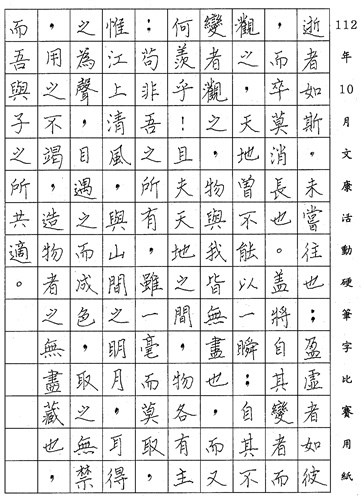 112年10月文康活動硬筆字比賽用紙
逝者如斯，未嘗往也；盈虛者如彼
，而卒莫消長也。蓋將自其變者而
觀之，天地曾不能以一瞬：自其不
變者觀之，物與我皆無盡也，而又
何羨乎！且夫天地之間，物各有主
：苟非吾之所有，雖一毫而莫取，
惟江上清風，與山間之明月，耳得
之為聲，目遇之而成色，取之無禁
，用之不竭，造物者之無盡藏也，
而吾與子之所共適。